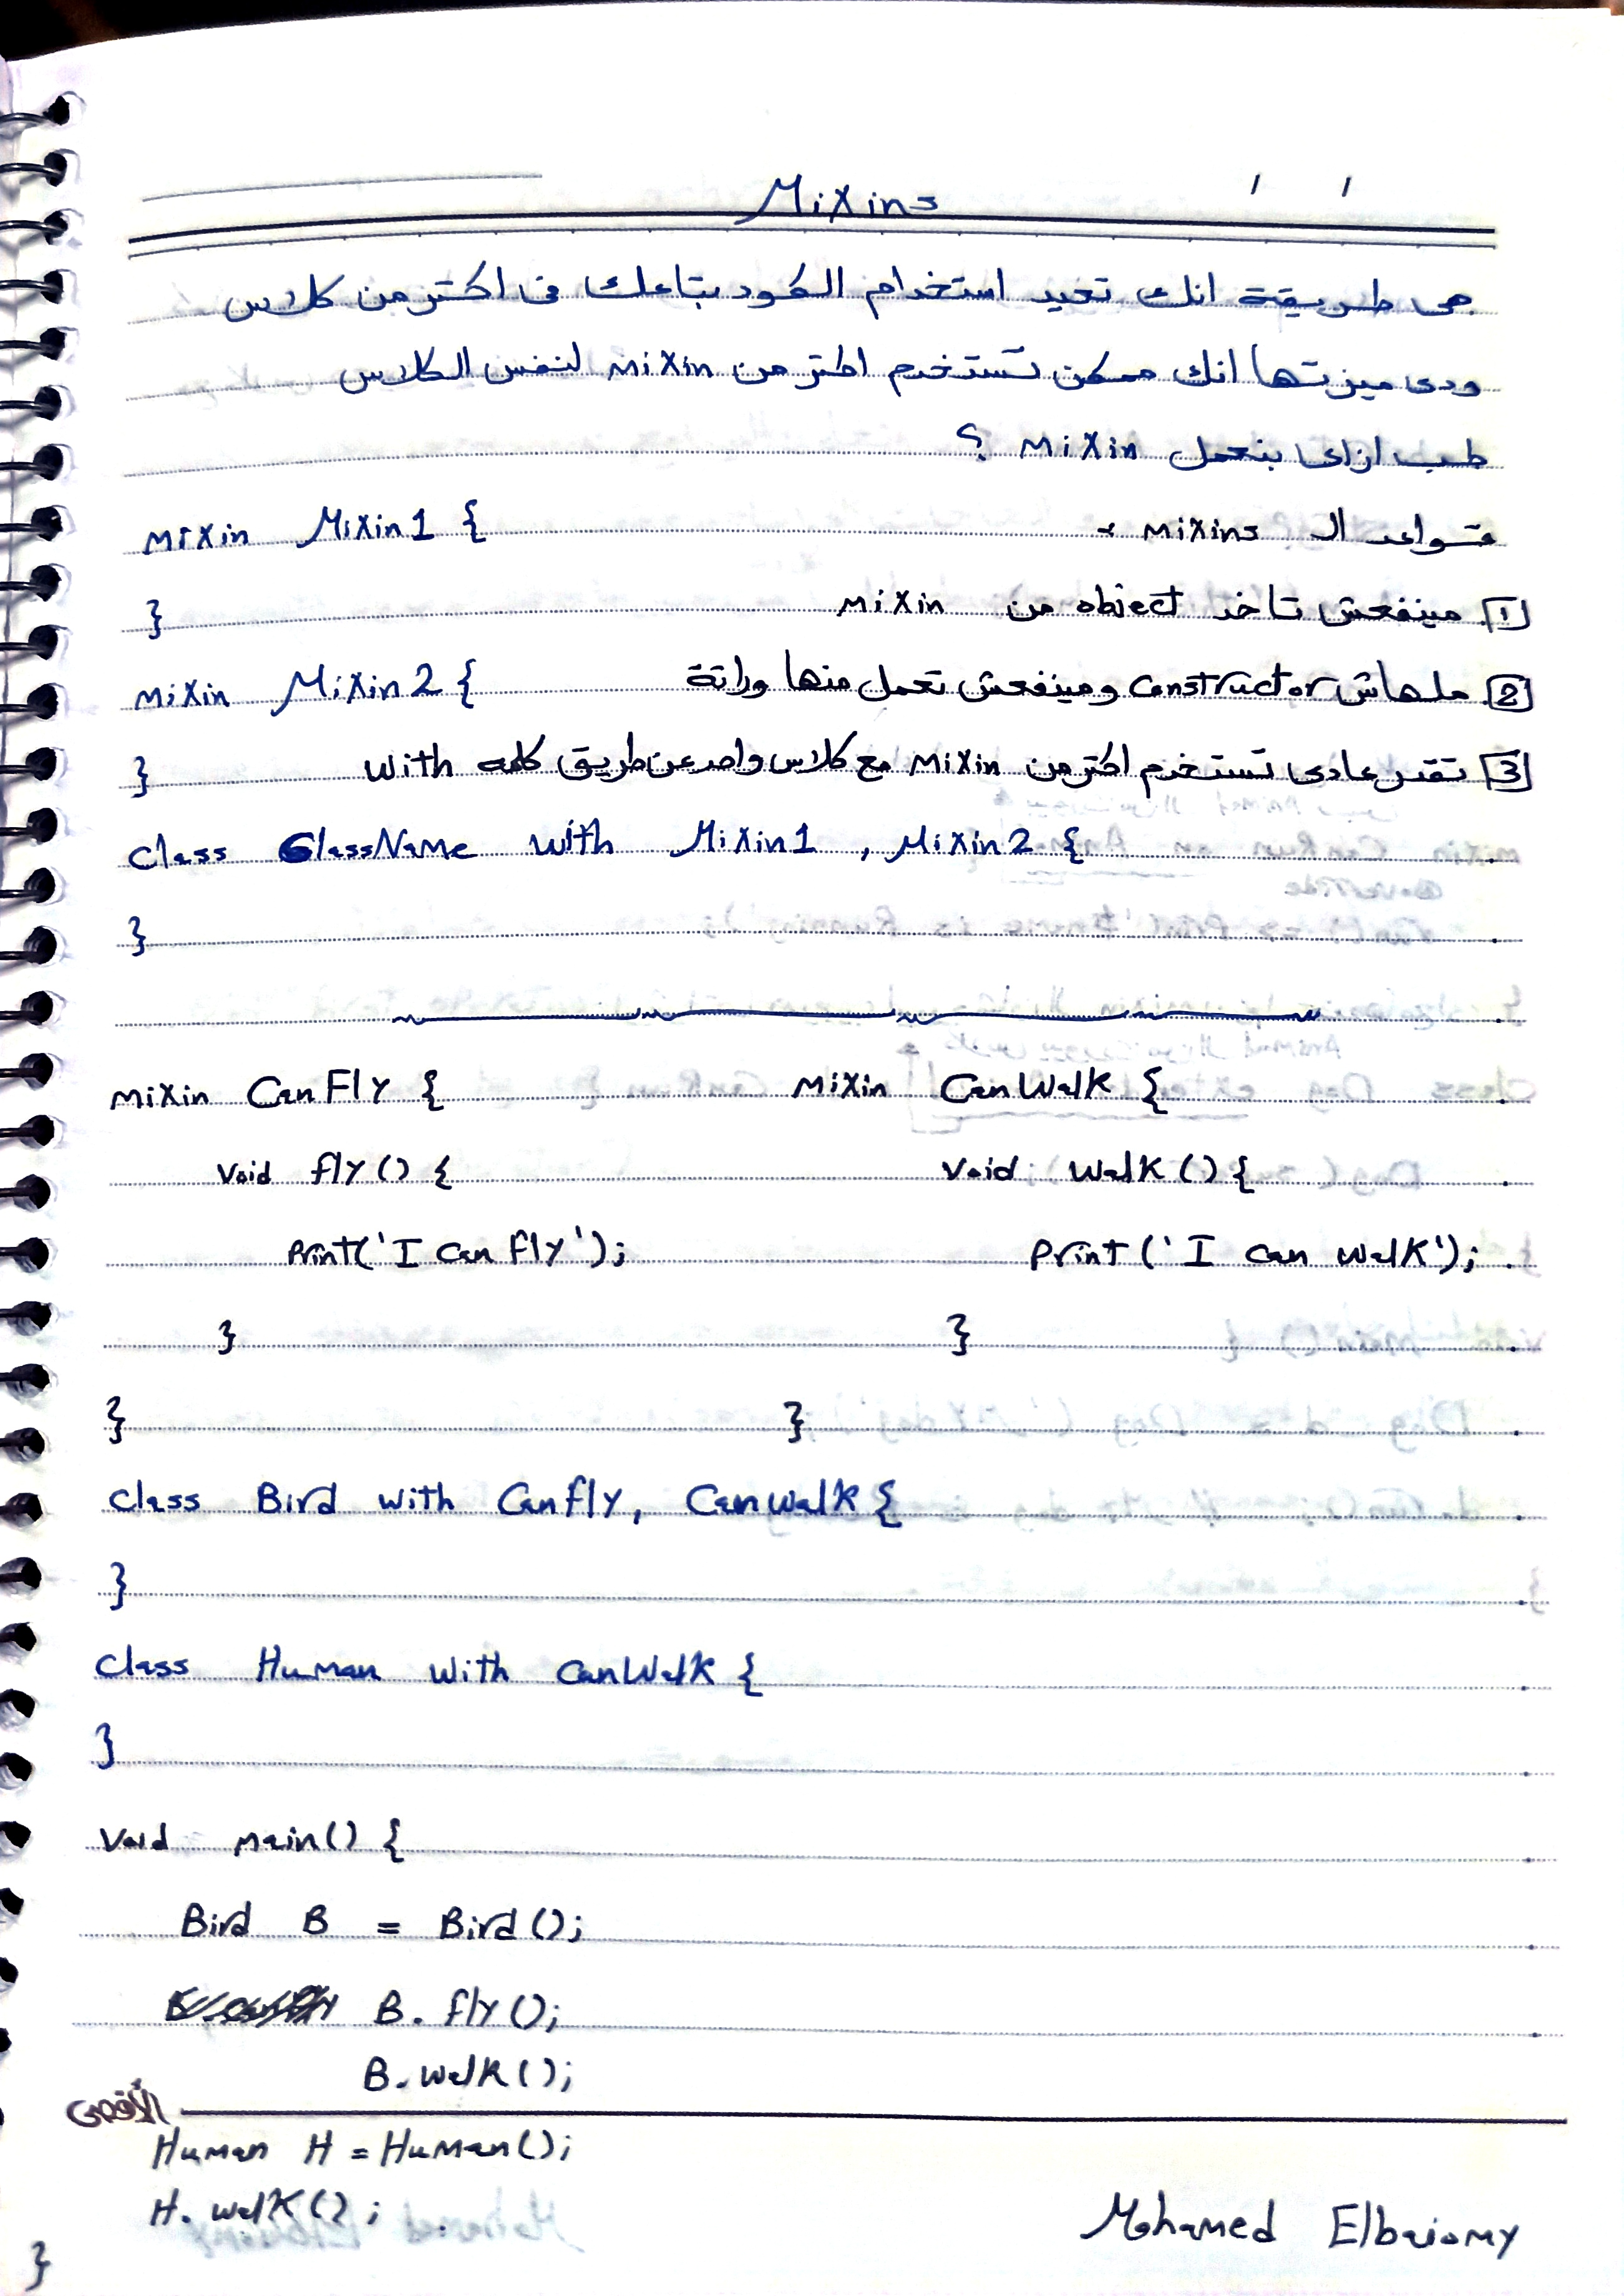 Mixins
/ /
هى طريقة انك تعيد استخدام الكود بتاعك فى اكتر من كلاس
ودى ميزتها انك ممكن تستخدم اكتر من Mixin لنفس الكلاس
طب ازاى بنعمل Mixin ؟
قواعد الـ Mixins :
mixin Mixin1 {
1 مينفعش تاخد object من Mixin
}
2 ملهاش Constructor ومينفعش تعمل منها وراثة
mixin Mixin2 {
3 تقدر عادى تستخدم اكتر من Mixin مع كلاس واحد عن طريق كلمه with
}
class ClassName with Mixin1 , Mixin2 {
}
mixin CanFly {
void fly() {
print('I can fly');
}
}
mixin CanWalk {
void walk() {
print('I can walk');
}
}
class Bird with Canfly, Canwalk {
}
class Human with CanWalk {
}
void main() {
Bird B = Bird();
B.fly();
B.walk();
الأقصى
Human H = Human();
H.walk();
}
Mohamed Elbaiomy